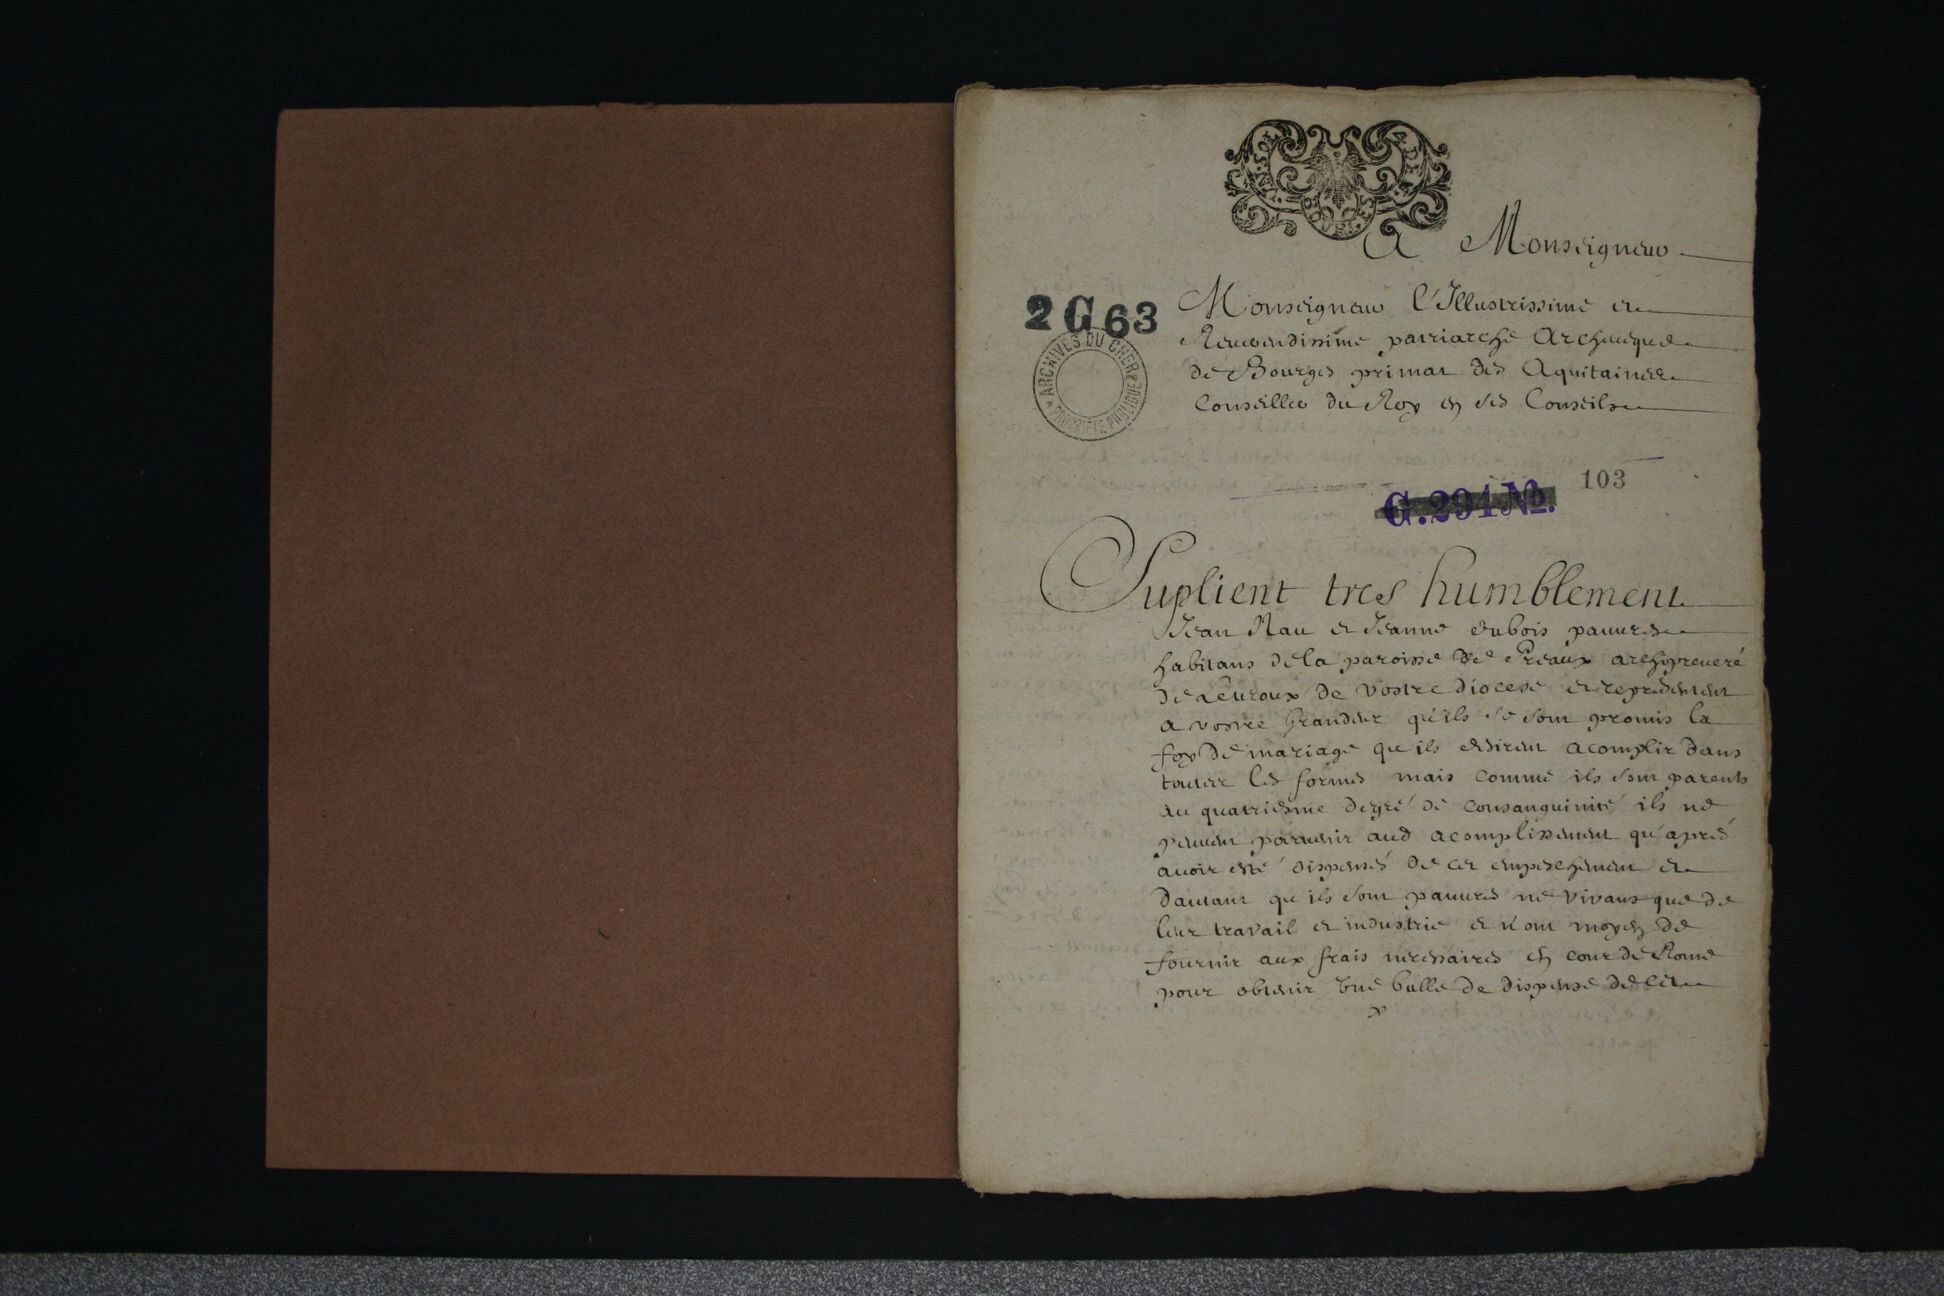 A Monseigneur
2 G 63
Monseigneur l'Illustrissime et
Reverendissime patriarche Archeveque
de Bourges primat des Aquitaines
Conseiller du Roy en ses Conseils
ARCHIVES DU CHER
PROPRIÉTÉ PUBLIQUE
103
G.294 No.
Suplient tres humblement
Jean Rau et Jeanne dubois pauvres
habitans de la paroisse de Preaux archipreveré
de Levroux de vostre diocese et representent
a vostre Grandeur qu'ils se sont promis la
foy de mariage que ils desirent acomplir dans
toutes les formes mais comme ils sont parents
au quatriesme degré de consanguinité ils ne
peuvent parvenir aud acomplissement qu'aprés
avoir esté dispensés de cet empeschement et
dautant qu'ils sont pauvres ne vivans que de
leur travail et industrie et n'ont moyen de
fournir aux frais necessaires en cour de Rome
pour obtenir une bulle de dispense de cet